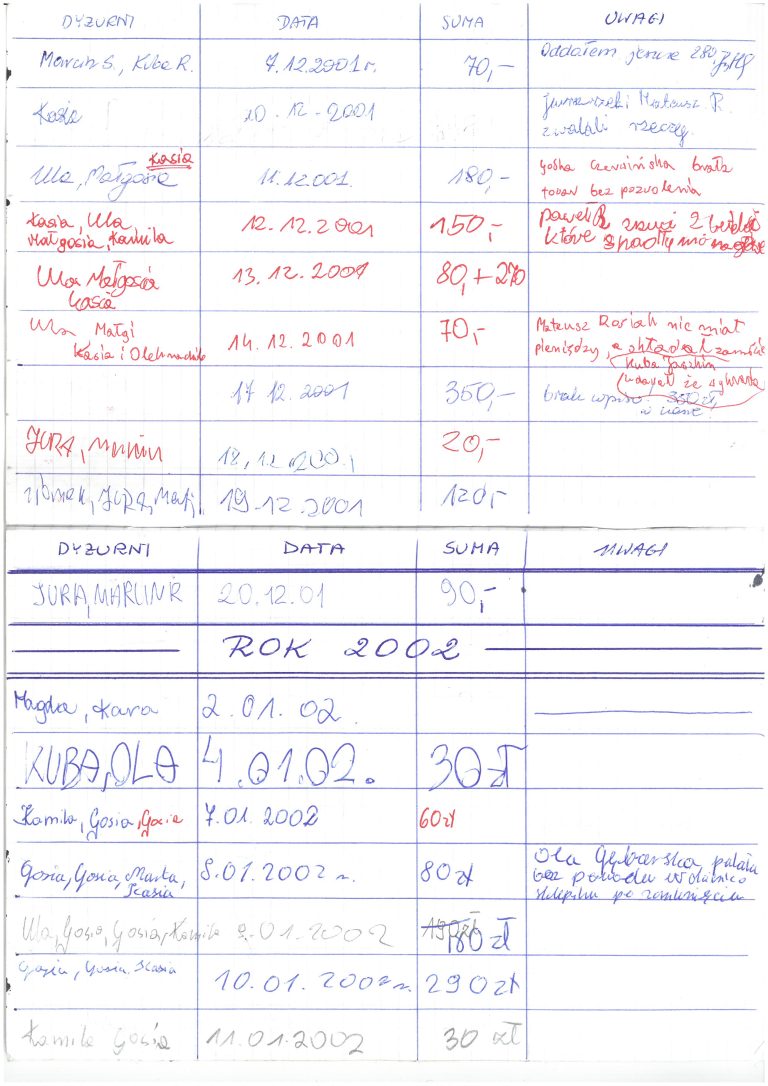 DYŻURNI DATA SUMA UWAGI
Marcin S., Kuba R. 7.12.2001 r. 70,- Oddałem jeszcze 280
Kasia 10.12-2001 Mateusz R.
zwalali rzeczy.
Kasia
Ula, Małgosia 11.12.001. 180,- Gośka Czerwińska brała
towar bez pozwolenia
Kasia, Ula 12.12.2001 150,- Paweł R zrzucił 2
Małgosia, Kamila które spadły mi na głowę
Ula Małgosia 13.12.2001 80,+270
Kasia
Ula Małgi 14.12.2001 70,- Mateusz Rosiak nie miał
Kasia i Ola pieniędzy, a składał
Kuba
że
17 12. 2001 350,- brak wpisu. 350 zł,
w
JURA, Marcin 18.12.2001 20,-
JURA, 19.12.2001 120,-
DYŻURNI DATA SUMA UWAGI
JURA, MARCIN R 20.12.01 90,-
ROK 2002
Magda, Kara 2.01.02.
KUBA, OLA 4.01.02. 30 zł
Kamila, Gosia, Gosia 7.01.2002 60 zł
Gosia, Gosia, Marta, 8.01.2002 r. 80 zł Ola
Kasia bez powodu
sklepiku po zamknięciu
Ula, Gosia, Gosia, Kamila 9.01.2002 180 zł
Gosia, Gosia. Kasia 10.01.2002 r. 290 zł
Kamila Gosia 11.01.2002 30 zł